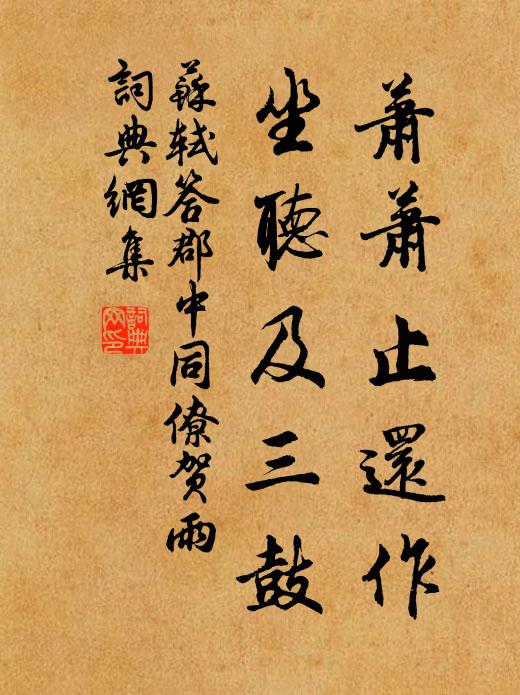 蕭蕭止還作
坐聽及三鼓
蘇軾答郡中同僚賀雨
詞典網集
詞典網印